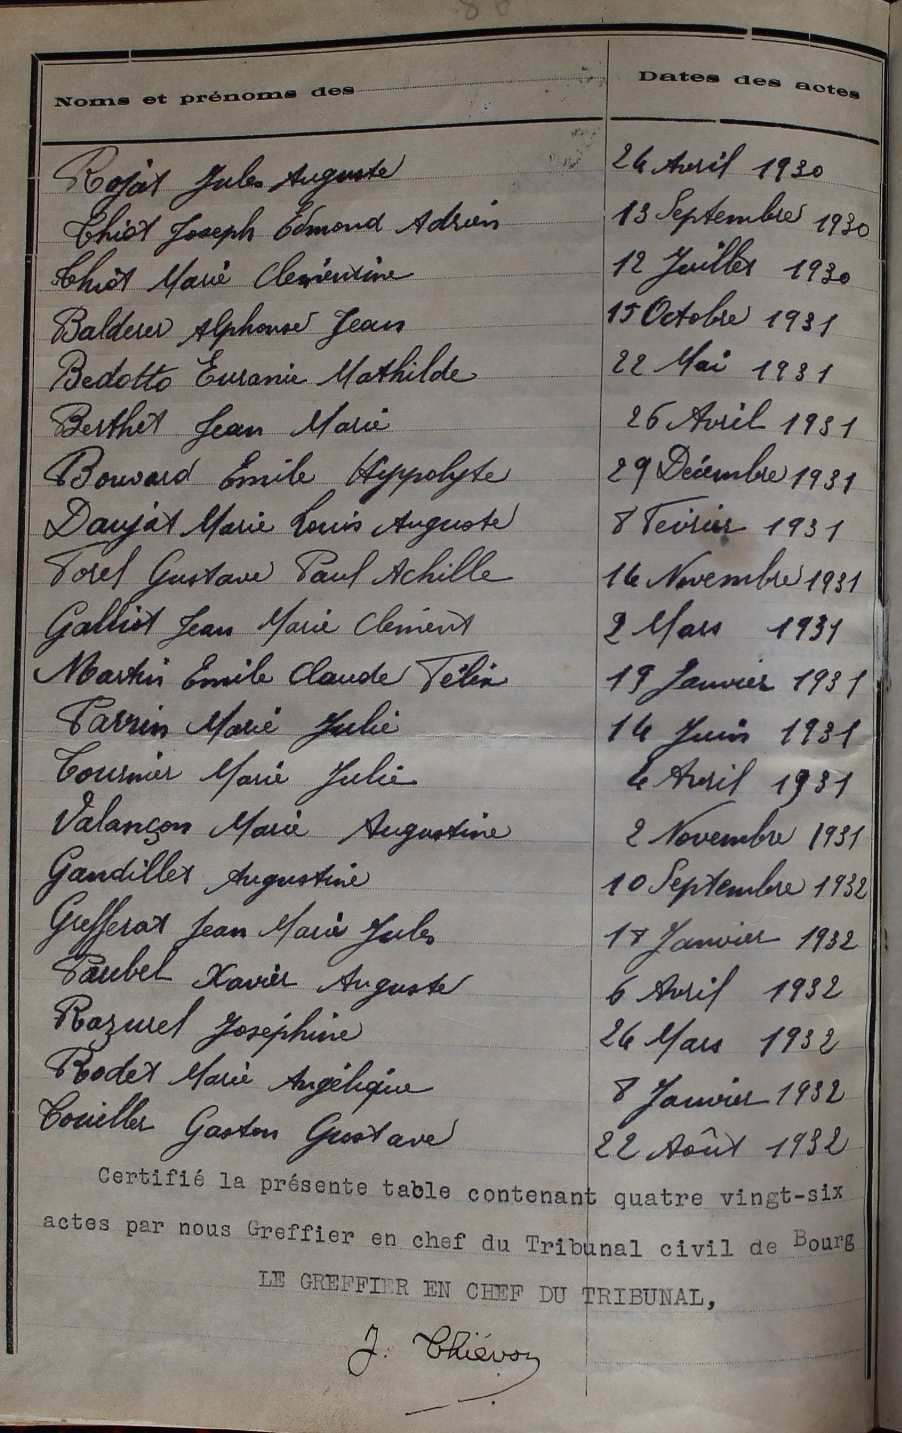 86
Noms et prénoms des
Dates des actes
Rojat Jules Auguste 24 Avril 1930
Chiot Joseph Edmond Adrien 13 Septembre 1930
Chiot Marie Clémentine 12 Juillet 1930
Balderer Alphonse Jean 15 Octobre 1931
Bedotto Euranie Mathilde 22 Mai 1931
Berthet Jean Marie 26 Avril 1931
Bouvard Emile Hyppolyte 29 Décembre 1931
Daujat Marie Louis Auguste 8 Fevrier 1931
Forel Gustave Paul Achille 14 Novembre 1931
Galliot Jean Marie Clément 2 Mars 1931
Martin Emile Claude Félix 19 Janvier 1931
Parrin Marie Julie 14 Juin 1931
Tournier Marie Julie 4 Avril 1931
Valançon Marie Augustine 2 Novembre 1931
Gandillet Augustine 10 Septembre 1932
Grefferat Jean Marie Jules 18 Janvier 1932
Paubel Xavier Auguste 6 Avril 1932
Razurel Joséphine 24 Mars 1932
Rodet Marie Angélique 8 Janvier 1932
Touiller Gaston Gustave 22 Août 1932
Certifié la présente table contenant quatre vingt-six
actes par nous Greffier en chef du Tribunal civil de Bourg
LE GREFFIER EN CHEF DU TRIBUNAL,
J. Thiévon